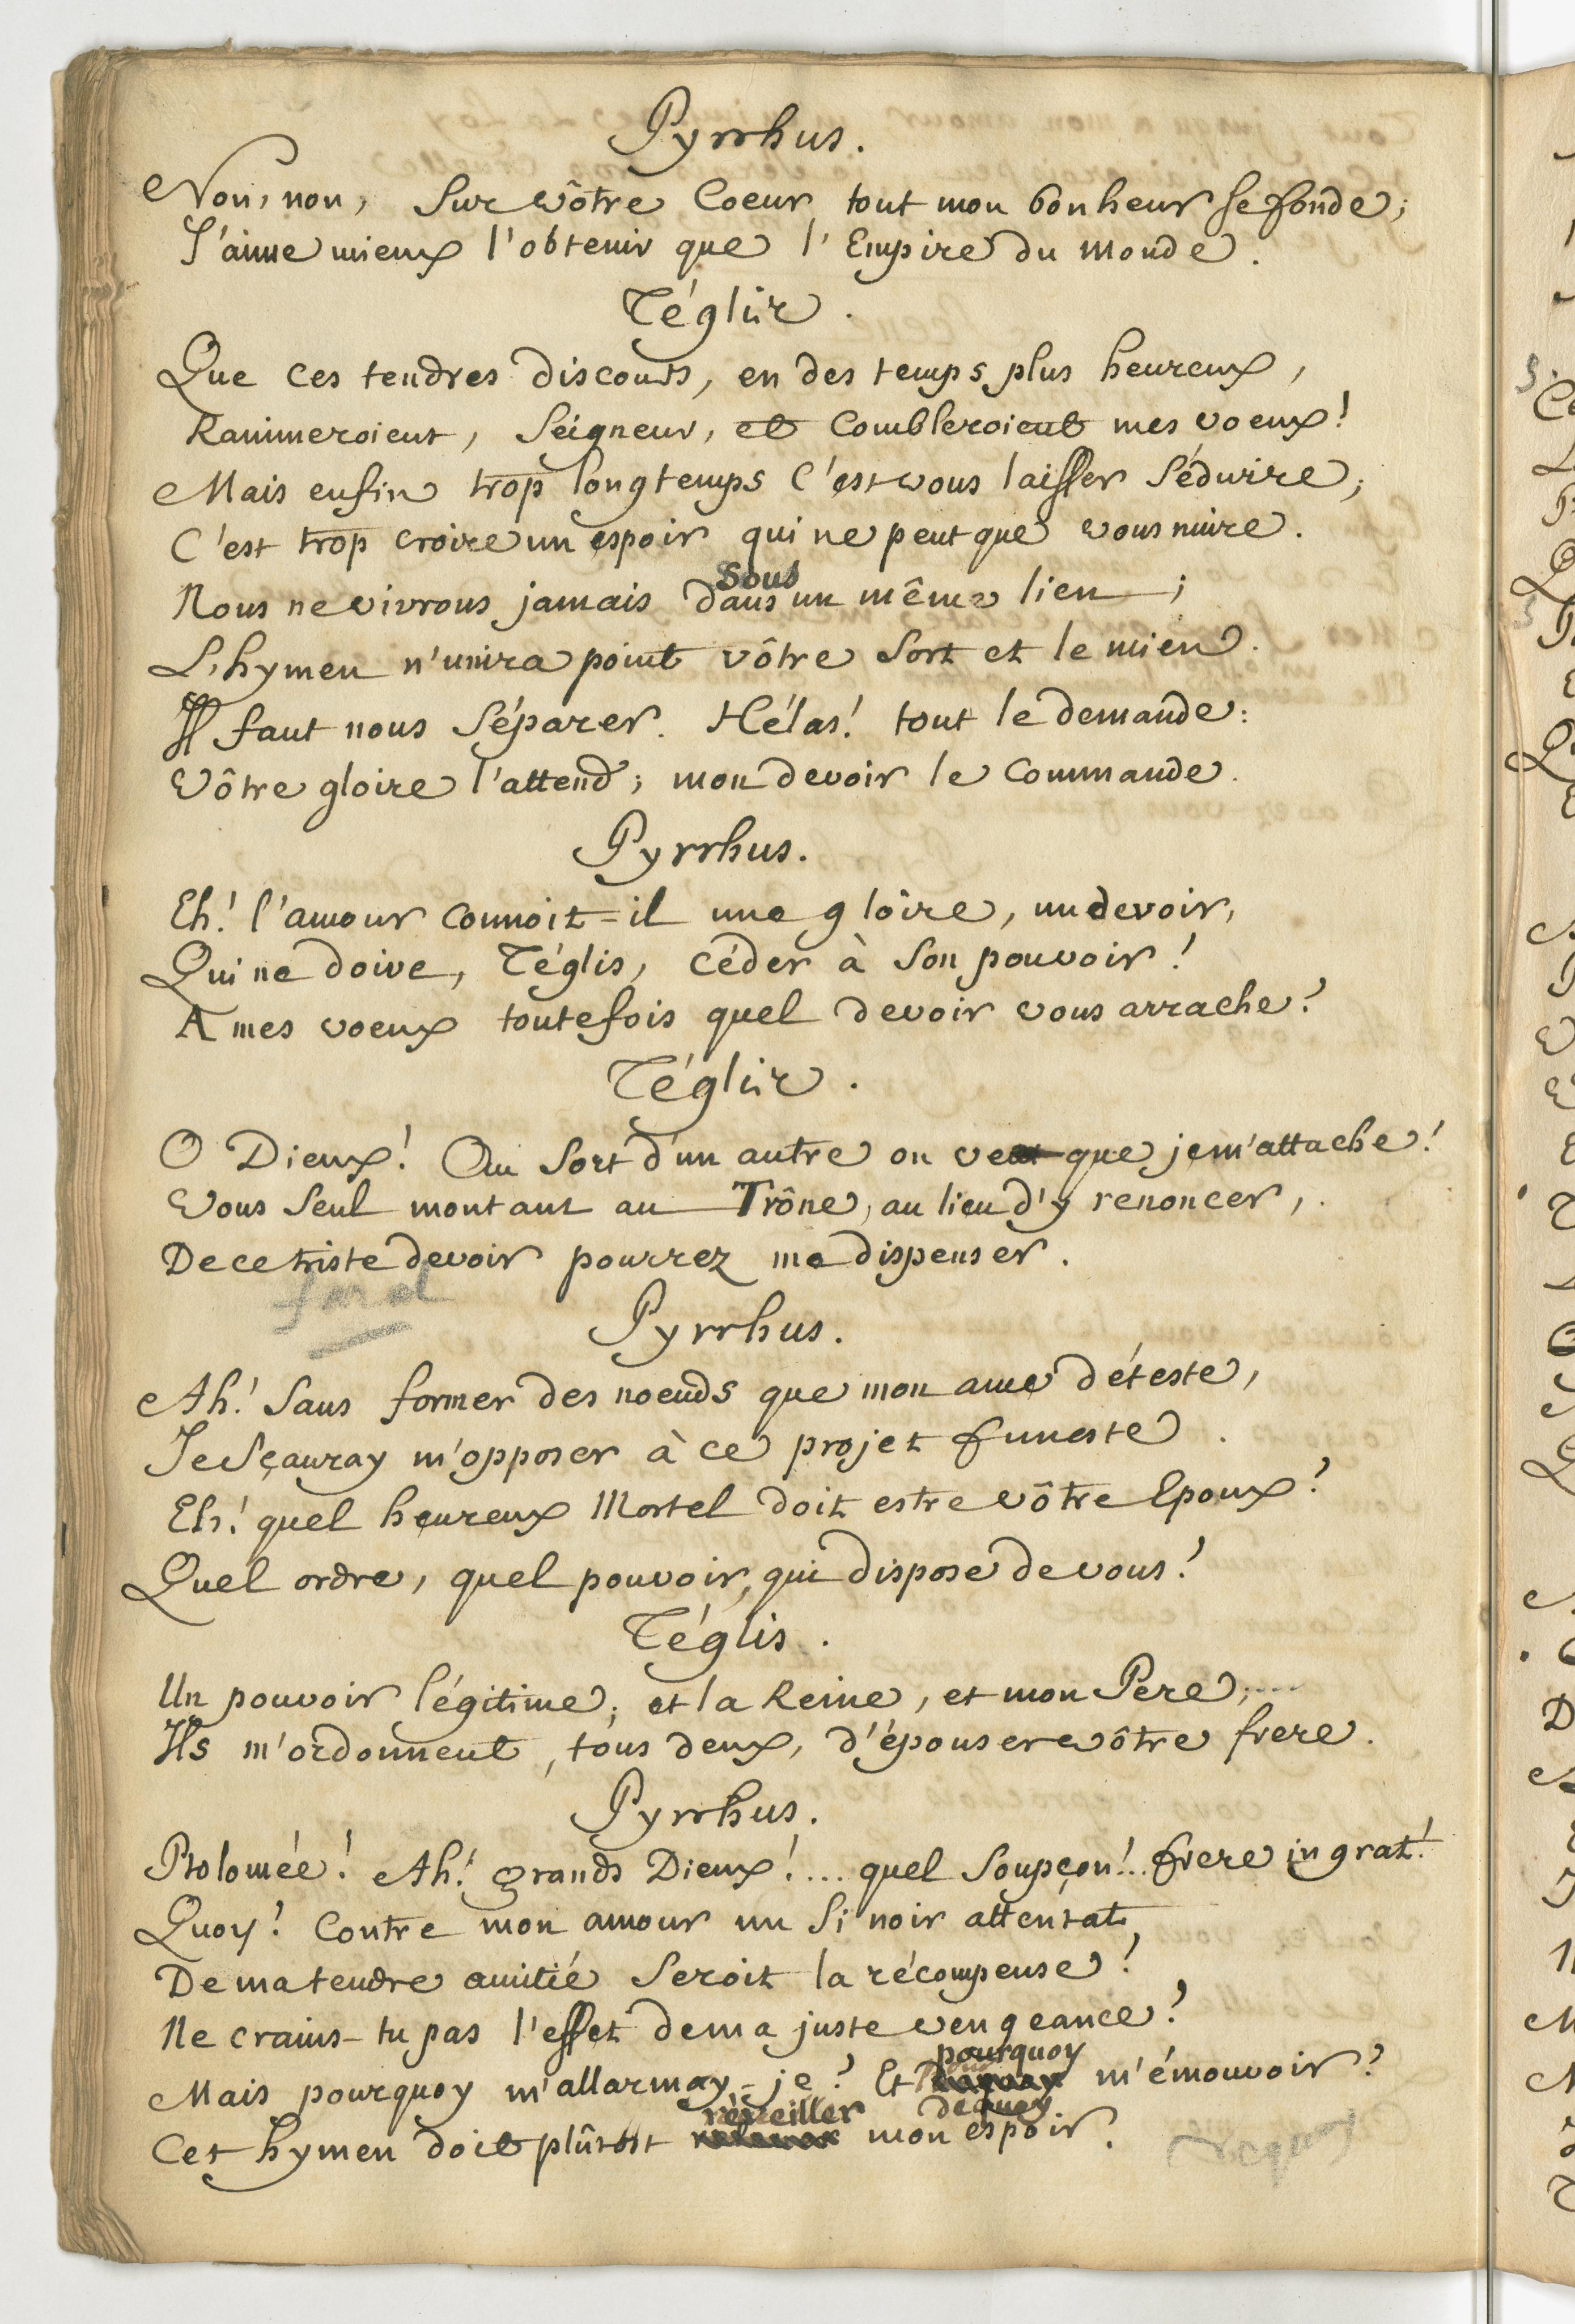 Pyrrhus.
Non, non, Sur vôtre Coeur tout mon bonheur se fonde;
J'aime mieux l'obtenir que l'Empire du monde.
Téglis.
Que ces tendres discours, en des temps plus heureux,
Ranimeroient, Seigneur, et Combleroient mes voeux!
Mais enfin trop longtemps c'est vous laisser Séduire;
C'est trop croire un espoir qui ne peut que vous nuire.
sous
Nous ne vivrons jamais dans un même lien;
L'hymen n'unira point vôtre Sort et le mien.
Il faut nous Séparer. Hélas! tout le demande:
Vôtre gloire l'attend; mon devoir le Commande.
Pyrrhus.
Eh! l'amour connoit-il une gloire, un devoir,
Qui ne doive, Téglis, céder à Son pouvoir!
A mes voeux toutefois quel devoir vous arrache?
Téglis.
O Dieux! Au Sort d'un autre on veut que je m'attache!
Vous Seul montant au Trône, au lieu d'y renoncer,
De ce triste devoir pourrez me dispenser.
Pyrrhus.
Ah! Sans former des noeuds que mon ame déteste,
Je Sçauray m'opposer à ce projet funeste.
Eh! quel heureux Mortel doit estre vôtre Epoux?
Quel ordre, quel pouvoir, qui dispose de vous?
Téglis.
Un pouvoir légitime; et la Reine, et mon Pere,....
Ils m'ordonnent, tous deux, d'épouser vôtre frere.
Pyrrhus.
Ptolomée! Ah! grands Dieux!... quel Soupçon!.. frere ingrat!
Quoy! Contre mon amour un Si noir attentat,
De ma tendre amitié Seroit la récompense!
Ne crains-tu pas l'effet de ma juste vengeance?
pourquoy
Mais pourquoy m'allarmay-je? Et m'émouvoir?
réveiller dequoy
Cet hymen doit plûtost mon espoir.